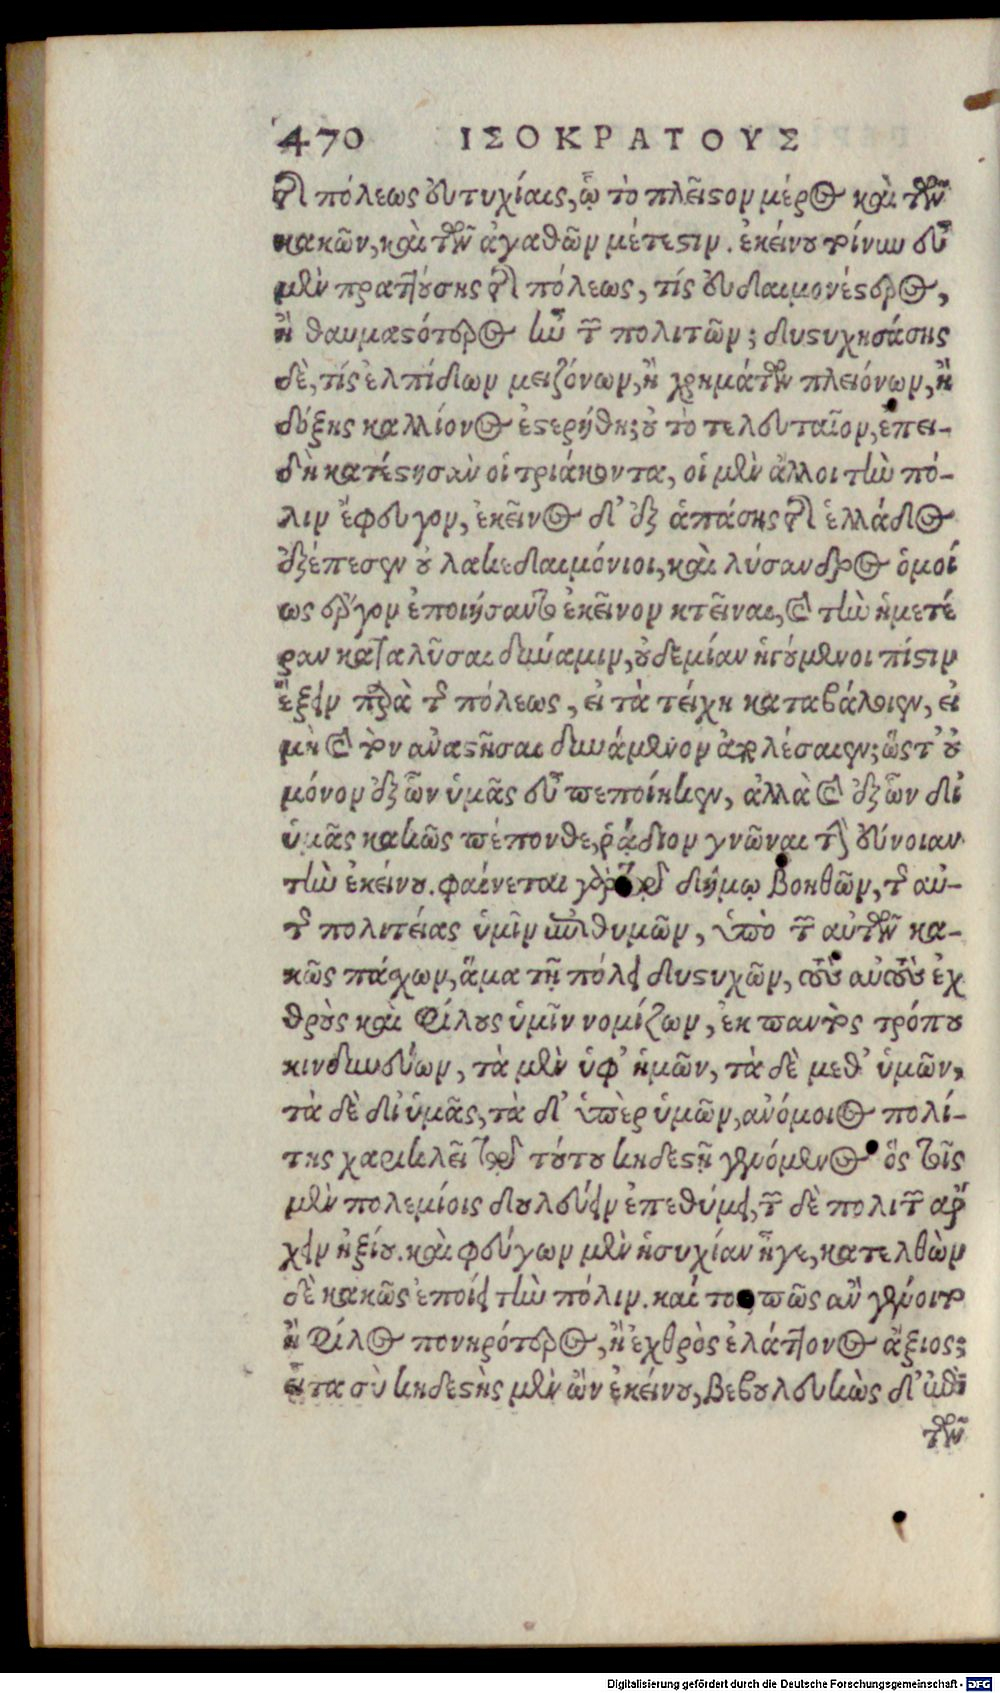 470 ΙΣΟΚΡΑΤΟΥΣ
τῆς πόλεως εὐτυχίαις, ᾧ τὸ πλεῖστον μέρος καὶ τῶν
κακῶν, καὶ τῶν ἀγαθῶν μέτεστιν. ἐκείνου τοίνυν εὖ
μὲν πραττούσης τῆς πόλεως, τίς εὐδαιμονέστερος,
ἢ θαυμαστότερος ἦν τῶν πολιτῶν; δυστυχησάσης
δὲ, τίς ἐλπίδων μειζόνων, ἢ χρημάτων πλειόνων, ἢ
δόξης καλλίονος ἐστερήθη; οὐ τὸ τελευταῖον, ἐπει-
δὴ κατέστησαν οἱ τριάκοντα, οἱ μὲν ἄλλοι τὴν πό-
λιν ἔφευγον, ἐκεῖνος δ' ἐξ ἁπάσης τῆς ἑλλάδος
ἐξέπεσεν; οὐ λακεδαιμόνιοι, καὶ λύσανδρος ὁμοί
ως ἔργον ἐποιήσαντο ἐκεῖνον κτεῖναι, καὶ τὴν ἡμετέ
ραν καταλῦσαι δύναμιν, οὐδεμίαν ἡγούμενοι πίστιν
ἕξειν παρὰ τῆς πόλεως, εἰ τὰ τείχη καταβάλοιεν, εἰ
μὴ καὶ τὸν ἀναστῆσαι δυνάμενον ἀπολέσαιεν; ὥστ' οὐ
μόνον ἐξ ὧν ὑμᾶς εὖ πεποίηκεν, ἀλλὰ καὶ ἐξ ὧν δι'
ὑμᾶς κακῶς πέπονθε, ῥάδιον γνῶναι τὴν εὔνοιαν
τὴν ἐκείνου. φαίνεται γὰρ τῷ δήμῳ βοηθῶν, τῆς αὐ-
τῆς πολιτείας ὑμῖν ἐπιθυμῶν, ὑπὸ τῶν αὐτῶν κα-
κῶς πάσχων, ἅμα τῇ πόλει δυστυχῶν, τοὺς αὐτοὺς ἐχ
θροὺς καὶ φίλους ὑμῖν νομίζων, ἐκ παντὸς τρόπου
κινδυνεύων, τὰ μὲν ὑφ' ἡμῶν, τὰ δὲ μεθ' ὑμῶν,
τὰ δὲ δι' ὑμᾶς, τὰ δ' ὑπὲρ ὑμῶν, ἀνόμοιος πολί-
της χαρικλεῖ τῷ τούτου κηδεστῇ γενόμενος ὃς τοῖς
μὲν πολεμίοις δουλεύειν ἐπεθύμει, τῶν δὲ πολιτῶν ἄρ
χειν ἠξίου. καὶ φεύγων μὲν ἡσυχίαν ἦγε, κατελθὼν
δὲ κακῶς ἐποίει τὴν πόλιν. καί τοι πῶς ἂν γένοιτο
ἢ φίλος πονηρότερος, ἢ ἐχθρὸς ἐλάττονος ἄξιος;
εἶτα σὺ κηδεστὴς μὲν ὢν ἐκείνου, βεβουλευκὼς δ' ἐπὶ
τῶν
Digitalisierung gefördert durch die Deutsche Forschungsgemeinschaft - DFG